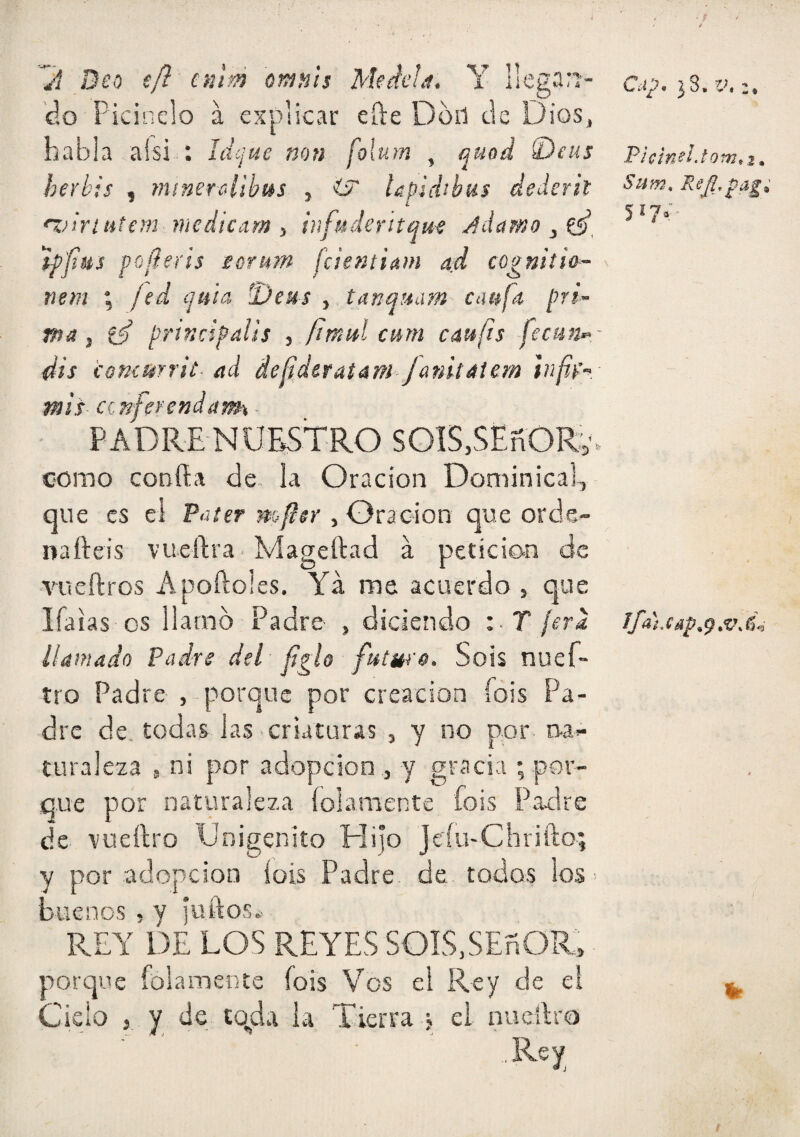 A Deo eſt enim omnis Medela. Y llegan-
do Picinelo à explicar eſte Dòn de Dios,
habla aſsi : Idque non ſolum , quod Deus
herbis , mineralibus , & lapidibus dederit
virtutem medicam , infuderitque Adamo , &
ipſius poſteris eorum ſcientiam ad cognitio-
nem ; ſed quia Deus , tanquam cauſa pri-
ma , & principalis , ſimul cum cauſis ſecun-
dis concurrit ad deſideratam ſanitatem infir-
mis conferendam.
PADRE NUESTRO SOIS,SEñOR,
como conſta de la Oracion Dominical,
que es el Pater noſter , Oracion que orde-
naſteis vueſtra Mageſtad à peticion de
vueſtros Apoſtoles. Yà me acuerdo , que
Iſaìas os llamò Padre , diciendo : Y ſerà
llamado Padre del ſiglo futuro. Sois nueſ-
tro Padre , porque por creacion ſois Pa-
dre de todas las criaturas , y no por na-
turaleza , ni por adopcion , y gracia ; por-
que por naturaleza ſolamente ſois Padre
de vueſtro Unigenito Hijo Jeſu-Chriſto;
y por adopcion ſois Padre de todos los
buenos , y juſtos.
REY DE LOS REYES SOIS,SEñOR,
porque ſolamente ſois Vos el Rey de el
Cielo , y de toda la Tierra ; el nueſtro
Rey
Cap. 38. v. 2.
Picinel.tom.2.
Sum. Reſl. pag.
517.
Iſai.cap.9.v.6.